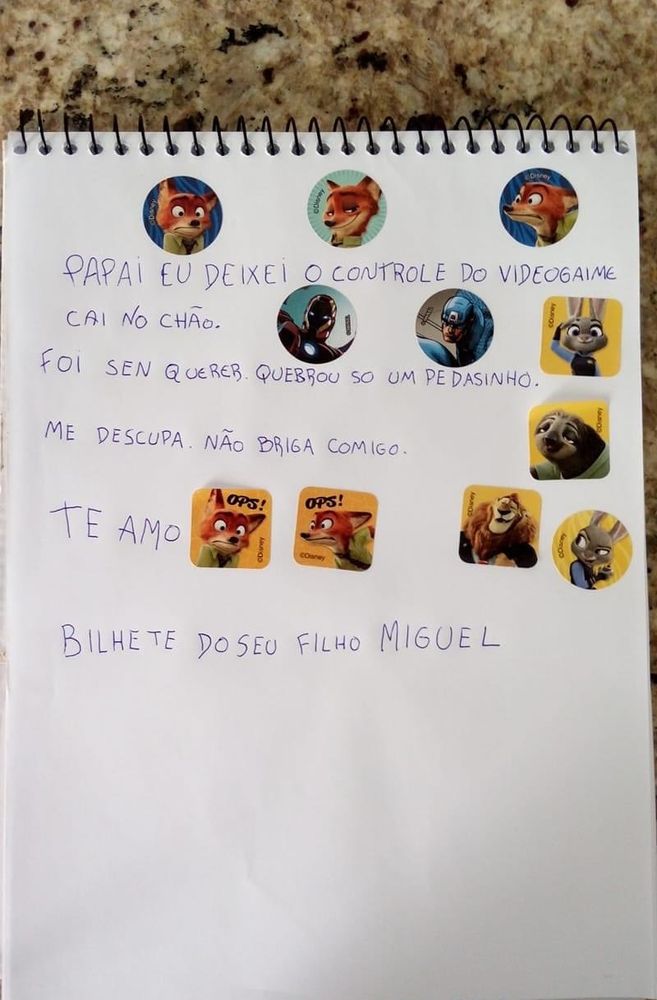 PAPAI EU DEIXEI O CONTROLE DO VIDEOGAIME
CAI NO CHÃO.
FOI SEN QUERER. QUEBROU SO UM PEDASINHO.
ME DESCUPA. NÃO BRIGA COMIGO.
TE AMO
OPS!
OPS!
BILHETE DO SEU FILHO MIGUEL
©Disney
©Disney
©Disney
©Disney
©Disney
©Disney
©Disney
©Disney
©Disney